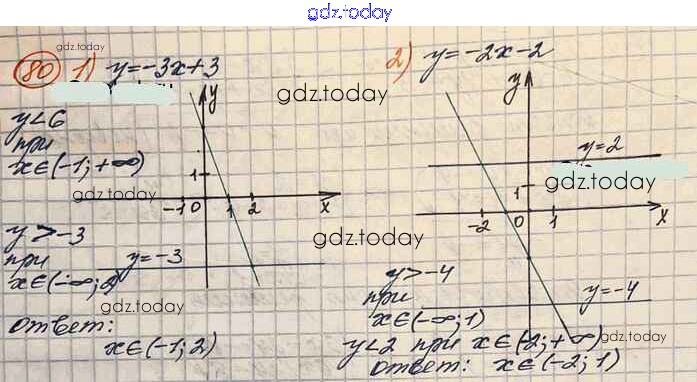 gdz.today
gdz.today
80 1) y=-3x+3
2) y=-2x-2
gdz.today
y<6
при
x∈(-1;+∞)
gdz.today
y
1
-1 0 1 2 x
y>-3
при
x∈(-∞;2)
y=-3
gdz.today
ответ:
x∈(-1;2)
y
y=2
gdz.today
1
-2 0 1 x
gdz.today
y>-4
при
x∈(-∞;1)
y=-4
y<2 при x∈(-2;+∞)
gdz.today
ответ: x∈(-2;1)